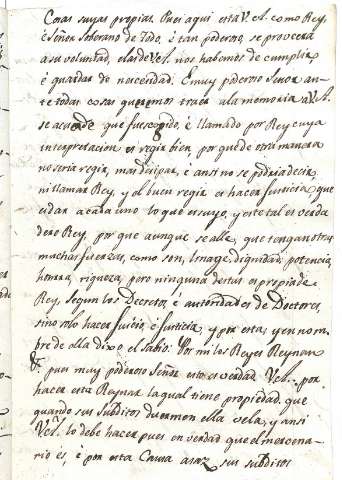 Cosas suyas propias. Pues aqui esta V. A. como Rey,
é Señor Soberano de Todo, é tan poderoso, se proveerá
a su voluntad, elas de V. A. nos habemos de cumplir
é guardar de necesidad. E muy poderoso Señor an-
te todas cosas queremos traer a la memoria a V. A.
se acuerde que fue escogido, é llamado por Rey cuya
interpretacion es regir bien, por que de otra manera
no seria regir, mas disipar, é ansi no se podria decir,
ni llamar Rey, y el buen regir es hacer justicia, que
es dar a cada uno lo que es suyo, y este tal es verda
dero Rey, por que aunque se alle, que tengan otras
muchas fuerzas, como son, linage, dignidad, potencia,
honrra, riqueza, pero ninguna destas es propia de
Rey, segun los Decretos, é autoridades de Doctores,
sino solo hacer juicio, é justicia, y por esta, y en nom
bre de alla dixo el Sabio: Por mi los Reyes Reynan
&. pues muy poderoso Señor esto es verdad V. A. por
hacer esta Reynar la qual tiene propiedad, que
quando sus subditos duermen ella vela, y ansi
V. A. lo debe hacer pues en verdad que el mercena-
rio es, é por esta Causa asaz sus subditos